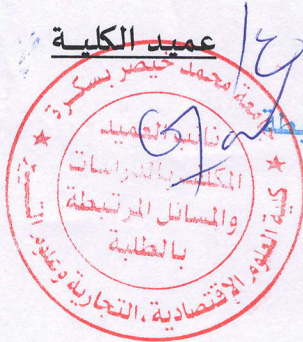 عميد الكلية
جامعة محمد خيضر بسكرة
نائب العميد
المكلف بالدراسات
والمسائل المرتبطة
بالطلبة
كلية العلوم الإقتصادية، التجارية وعلوم التسيير